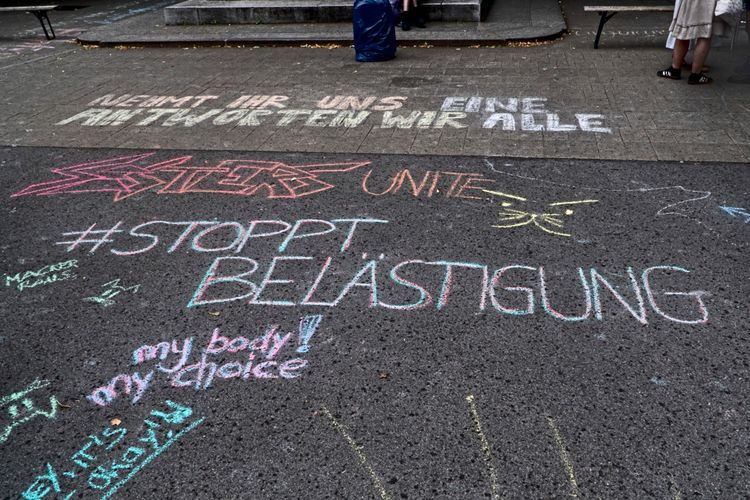 NEHMT IHR UNS EINE
ANTWORTEN WIR ALLE
SISTERS UNITE
#STOPPT
BELÄSTIGUNG
MACKER
RAUS
my body!
my choice
it's
okay!